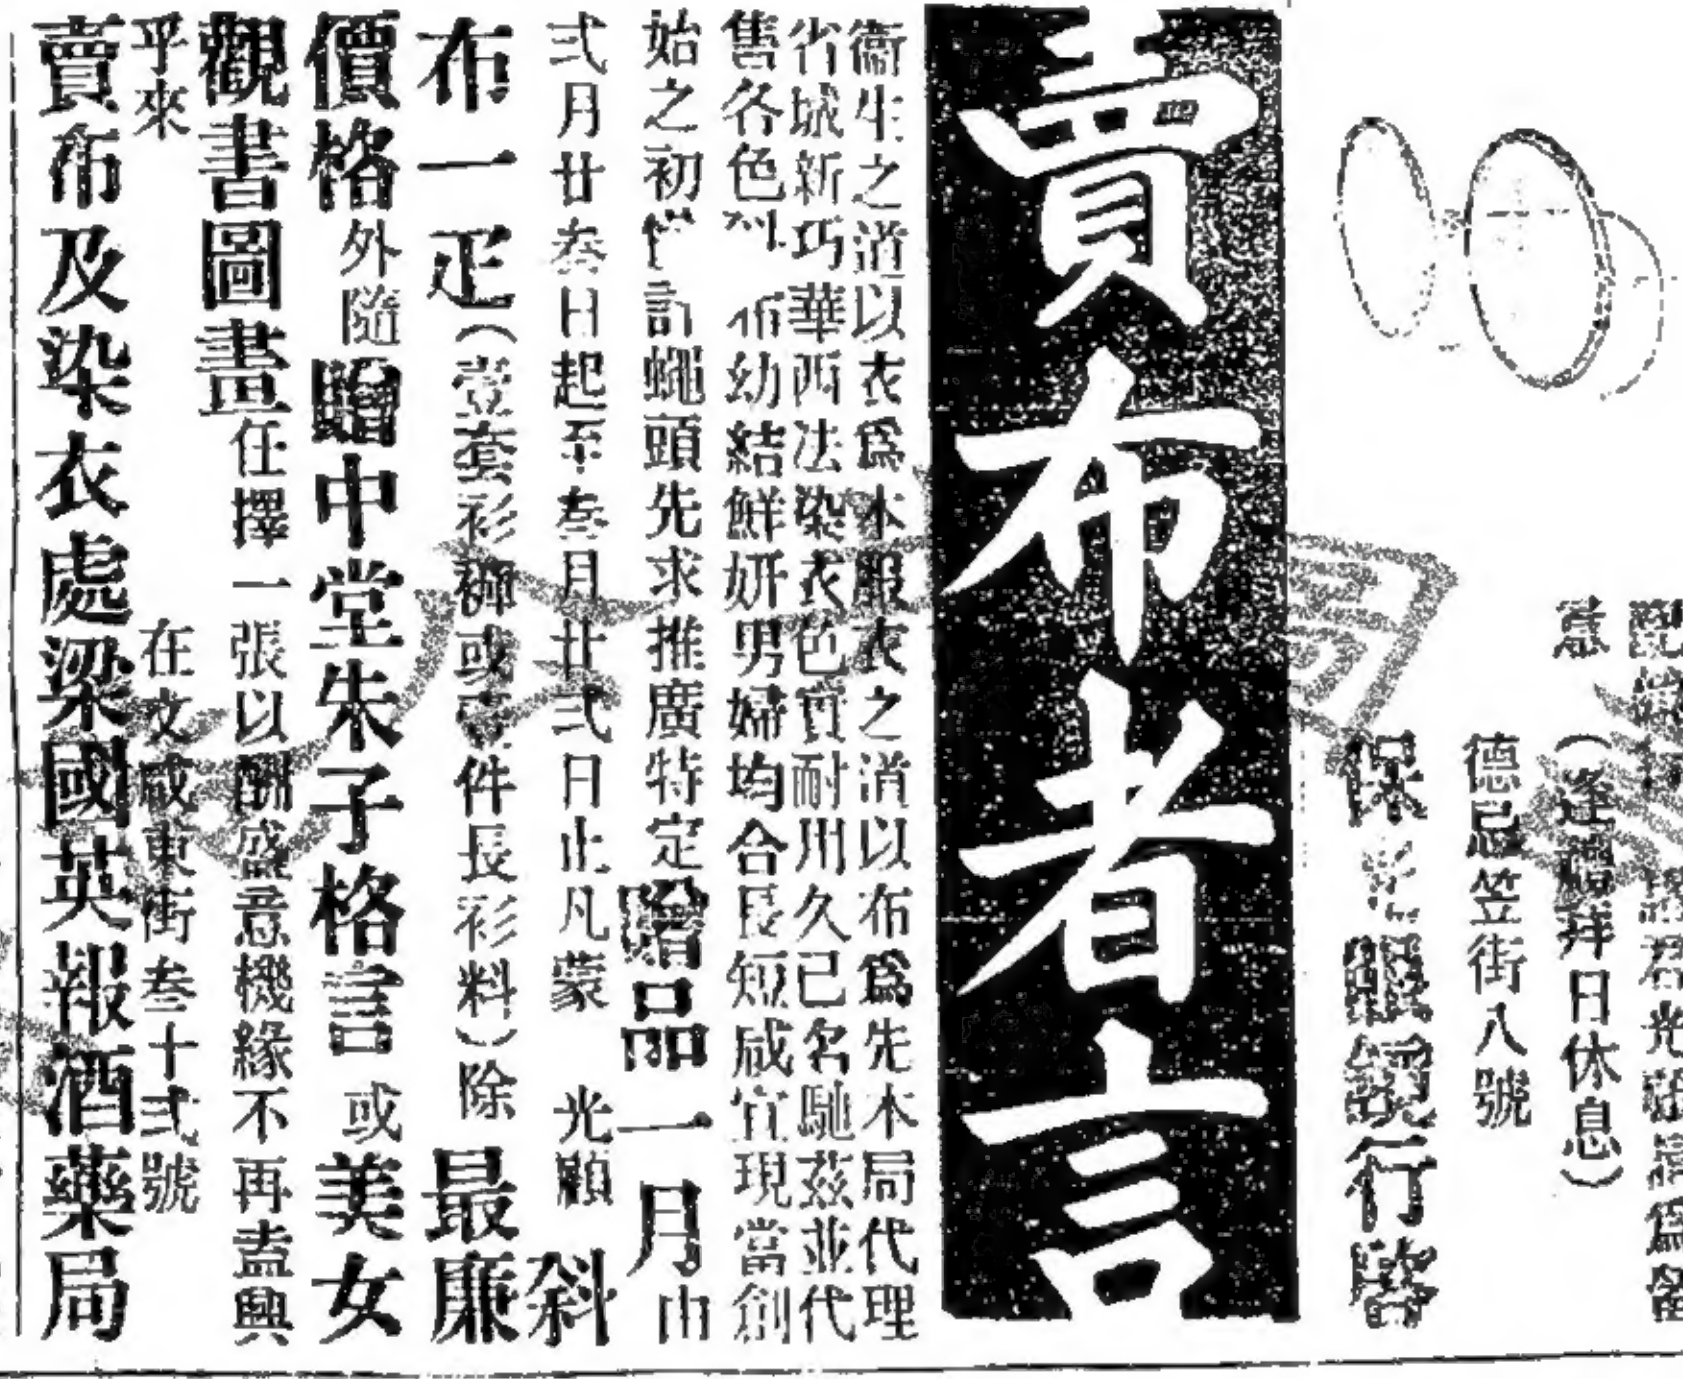 意
(逢禮拜日休息)
德忌笠街八號
保眼鏡行啓
賣布者言
衞生之道以衣爲本服衣之道以布爲先本局代理
省城新巧華西法染衣色實耐用久已名馳茲並代
售各色布幼結鮮妍男婦均合長短咸宜現當創
始之初計蠅頭先求推廣特定贈品一月由
弍月廿叁日起至叁月廿弍日止凡蒙 光顧 斜
布一疋(壹套衫褲或壹件長衫料)除 最廉
價格外隨贈中堂朱子格言或美女
觀書圖畫任擇一張以酬盛意機緣不再盍興
乎來 在文咸東街叁十弍號
賣布及染衣處梁國英報酒藥局